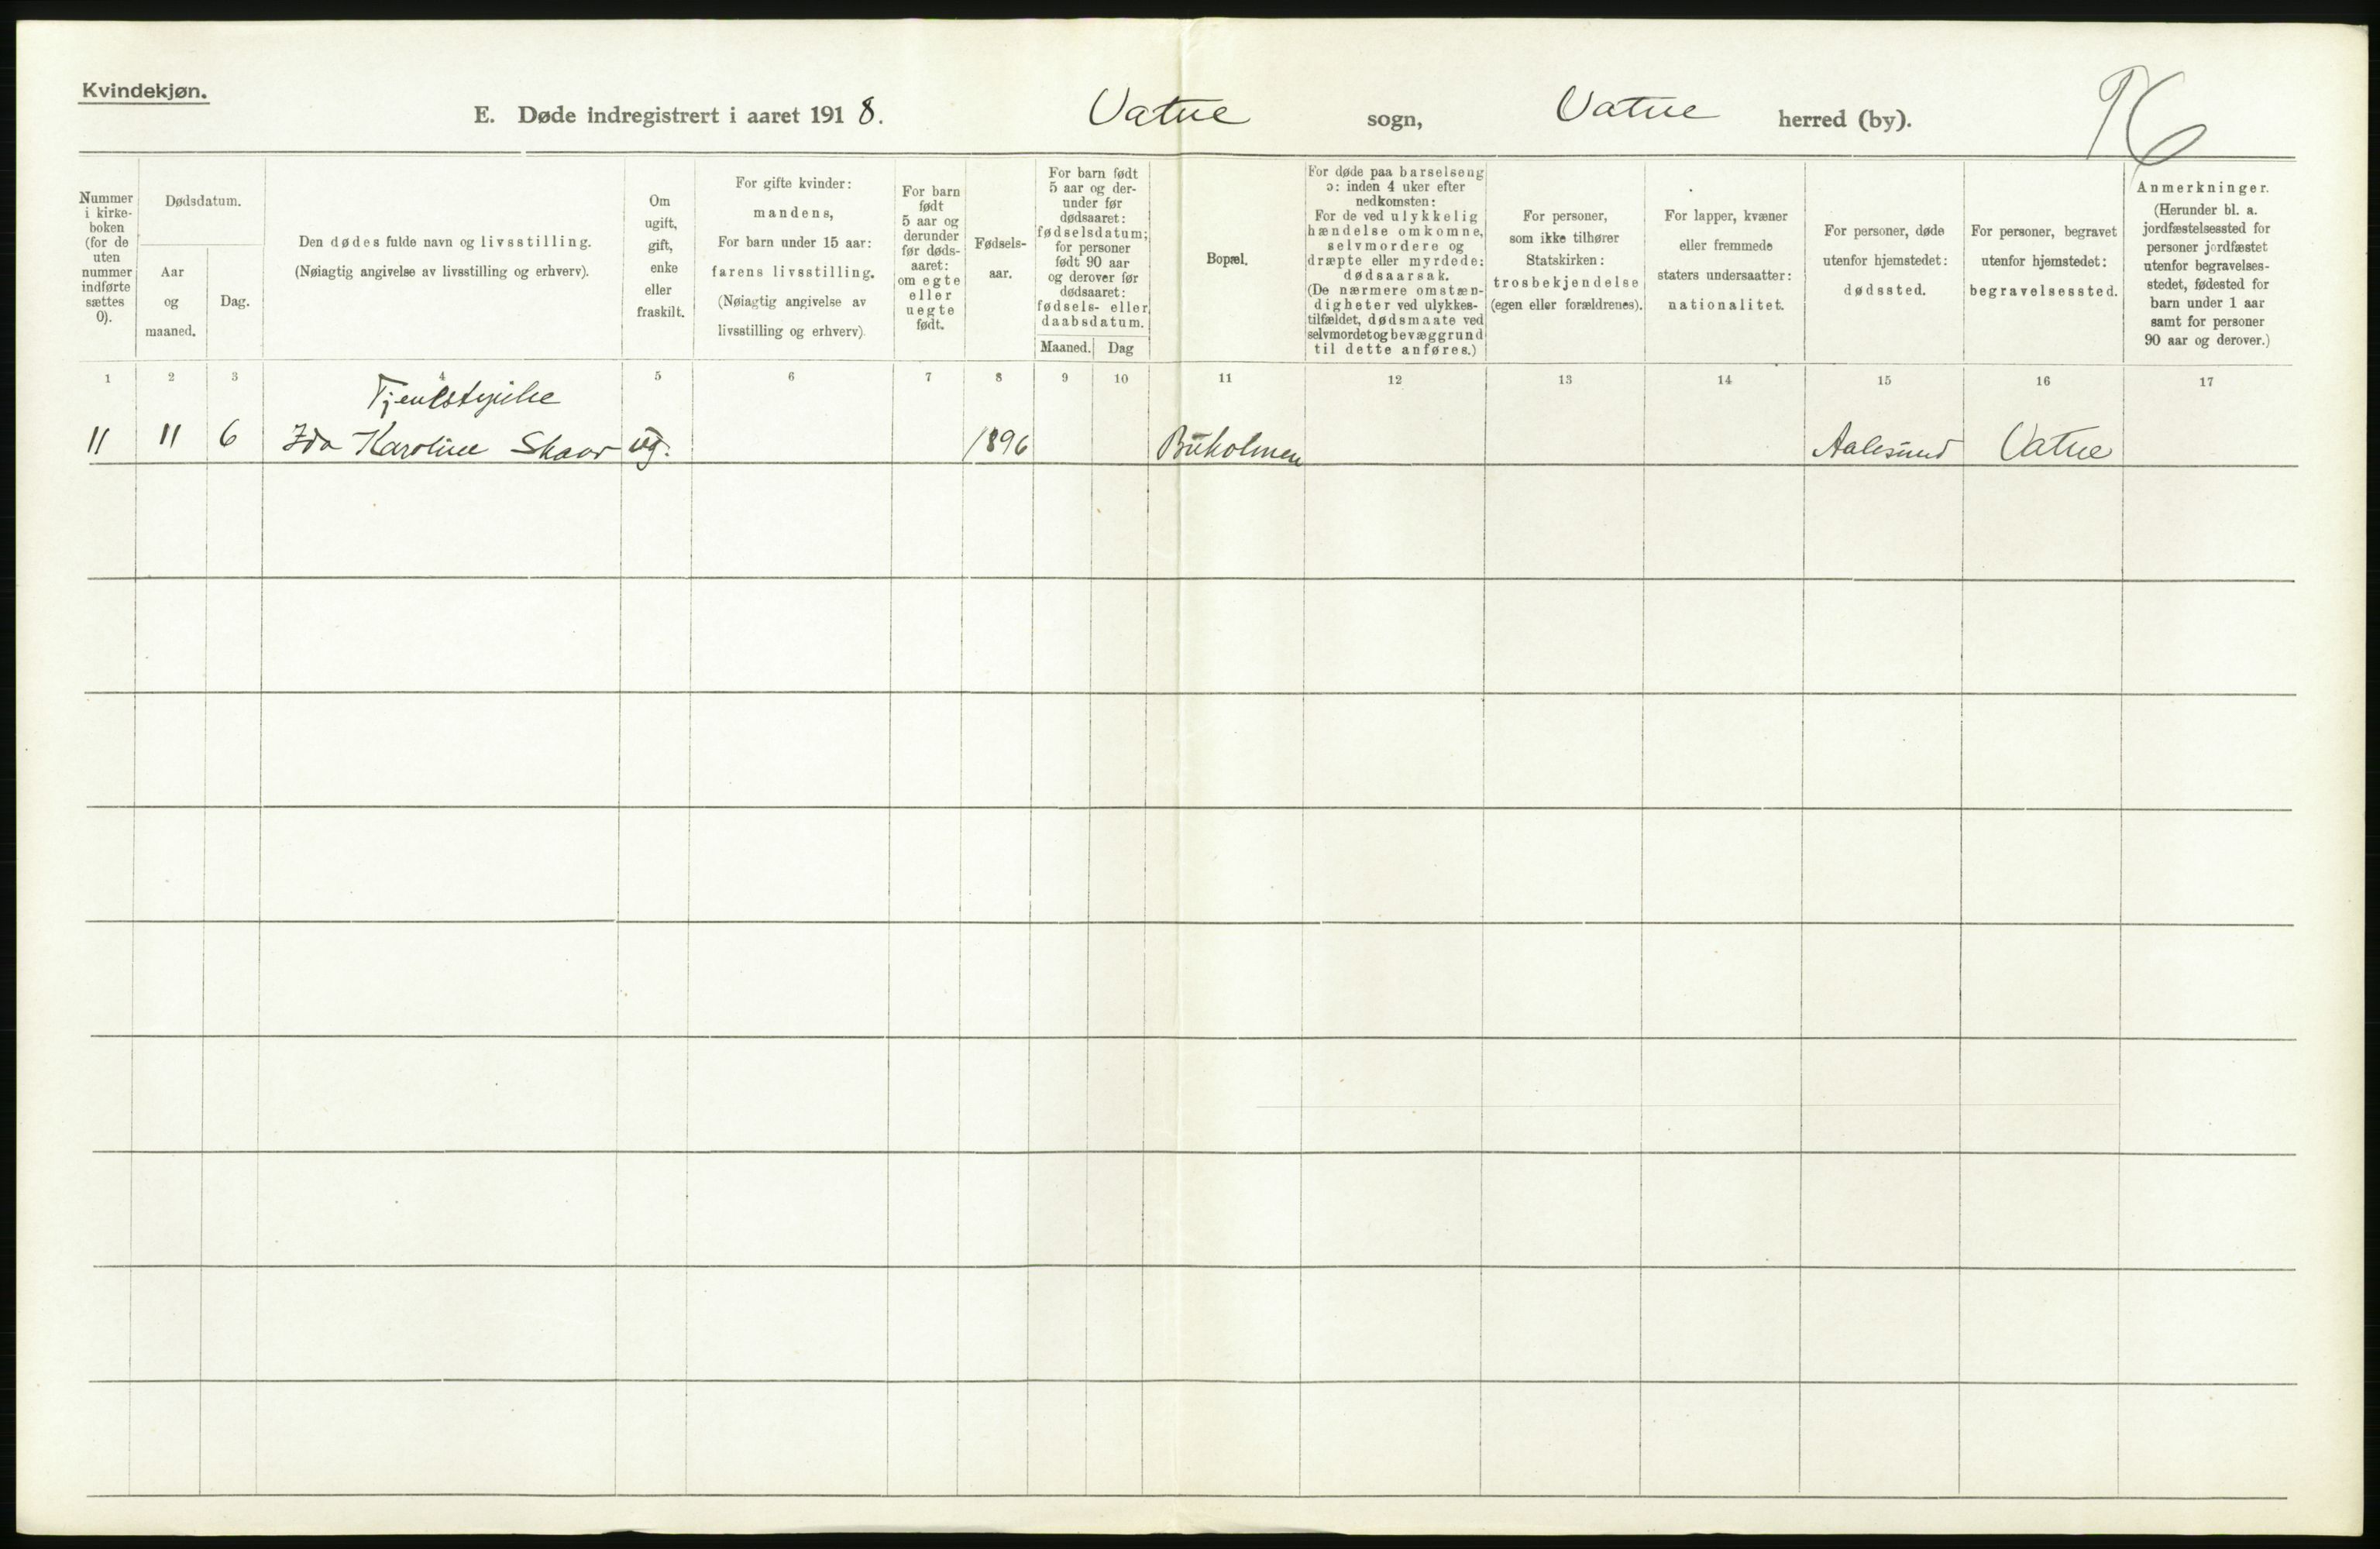 Kvindekjøn.
E. Døde indregistrert i aaret 1918. Vatne sogn, Vatne herred (by). 96
Nummer
i kirke-
boken
(for de
uten
nummer
indførte
sættes
0).
Dødsdatum.
Aar
og
maaned.
Dag.
Den dødes fulde navn og livsstilling.
(Nøiagtig angivelse av livsstilling og erhverv).
Om
ugift,
gift,
enke
eller
fraskilt.
For gifte kvinder:
mandens,
For barn under 15 aar:
farens livsstilling.
(Nøiagtig angivelse av
livsstilling og erhverv).
For barn
født
5 aar og
derunder
før døds-
aaret:
om egte
eller
uegte
født.
Fødsels-
aar.
For barn født
5 aar og der-
under før
dødsaaret:
fødselsdatum;
for personer
født 90 aar
og derover før
dødsaaret:
fødsels- eller
daabsdatum.
Maaned. Dag
Bopæl.
For døde paa barselseng
ɔ: inden 4 uker efter
nedkomsten:
For de ved ulykkelig
hændelse omkomne,
selvmordere og
dræpte eller myrdede:
dødsaarsak.
(De nærmere omstæn-
digheter ved ulykkes-
tilfældet, dødsmaate ved
selvmordet og bevæggrund
til dette anføres.)
For personer,
som ikke tilhører
Statskirken:
trosbekjendelse
(egen eller forældrenes).
For lapper, kvæner
eller fremmede
staters undersaatter:
nationalitet.
For personer, døde
utenfor hjemstedet:
dødssted.
For personer, begravet
utenfor hjemstedet:
begravelsessted.
Anmerkninger.
(Herunder bl. a.
jordfæstelsessted for
personer jordfæstet
utenfor begravelses-
stedet, fødested for
barn under 1 aar
samt for personer
90 aar og derover.)
1 2 3 4 5 6 7 8 9 10 11 12 13 14 15 16 17
Tjenestepike
11 11 6 Ida Karoline Skaar ug. 1896 Bukolmen Aalesund Vatne